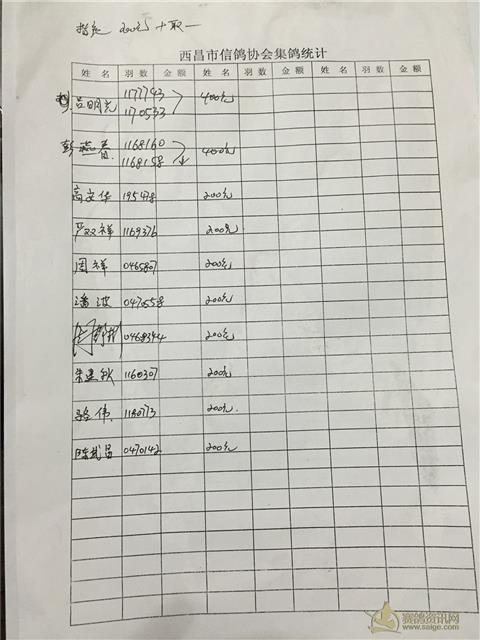 指定 200元 十取一
西昌市信鸽协会集鸽统计
姓 名 羽 数 金 额 姓 名 羽 数 金 额 姓 名 羽 数 金 额
吕明光 1177743 400元
1170533
彭燕春 1168160 400元
1168158
高安华 195478 200元
严双祥 1169376 200元
周祥 0465807 200元
潘波 0470558 200元
0468394 200元
朱建秋 1160307 200元
骆伟 1180773 200元
陈武昌 0470142 200元
赛鸽资讯网
www.saige.com